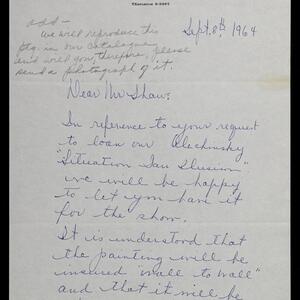 TElephone 9-2997
add —
We will reproduce this
ptg. in our catalogue
and will you, therefore, please
send a photograph of it.
Sept. 8th 1964
Dear Mr Shaw:
In reference to your request
to loan our Alechinsky
"Situation Sans Illusion"
we will be happy
to let you have it
for the show.
It is understood that
the painting will be
insured "wall to wall"
and that it will be